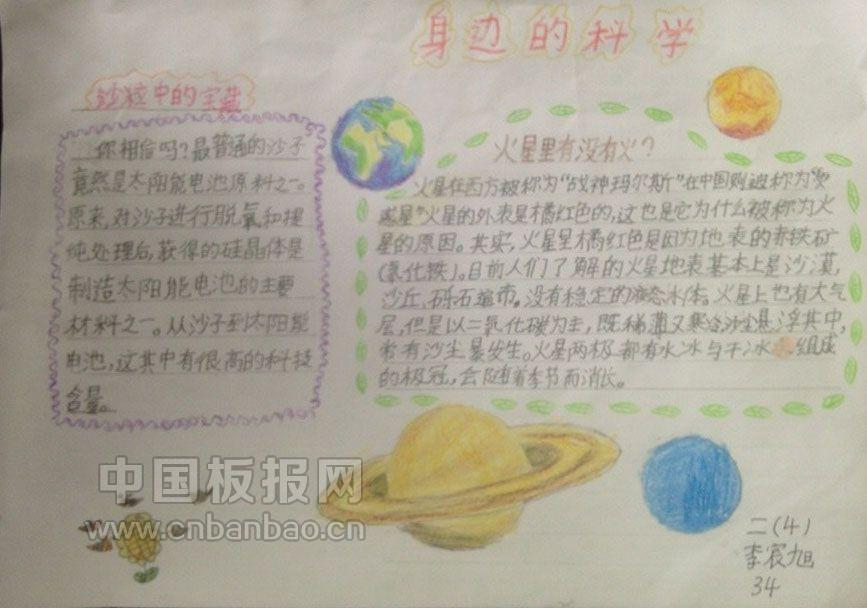 身边的科学
沙粒中的宝藏
你相信吗？最普通的沙子
竟然是太阳能电池原料之一。
原来，对沙子进行脱氧和提
纯处理后，获得的硅晶体是
制造太阳能电池的主要
材料之一。从沙子到太阳能
电池，这其中有很高的科技
含量。
火星里有没有火？
火星在西方被称为“战神玛尔斯”在中国则被称为“荧
惑星”火星的外表是橘红色的，这也是它为什么被称为火
星的原因。其实，火星呈橘红色是因为地表的赤铁矿
（氧化铁）。目前人们了解的火星地表基本上是沙漠，
沙丘、砾石遍布。没有稳定的液态水体。火星上也有大气
层，但是以二氧化碳为主，既稀薄又寒冷，沙尘悬浮其中，
常有沙尘暴发生。火星两极都有水冰与干冰组成
的极冠，会随着季节而消长。
中国板报网
www.cnbanbao.cn
二（4）
李宸旭
34